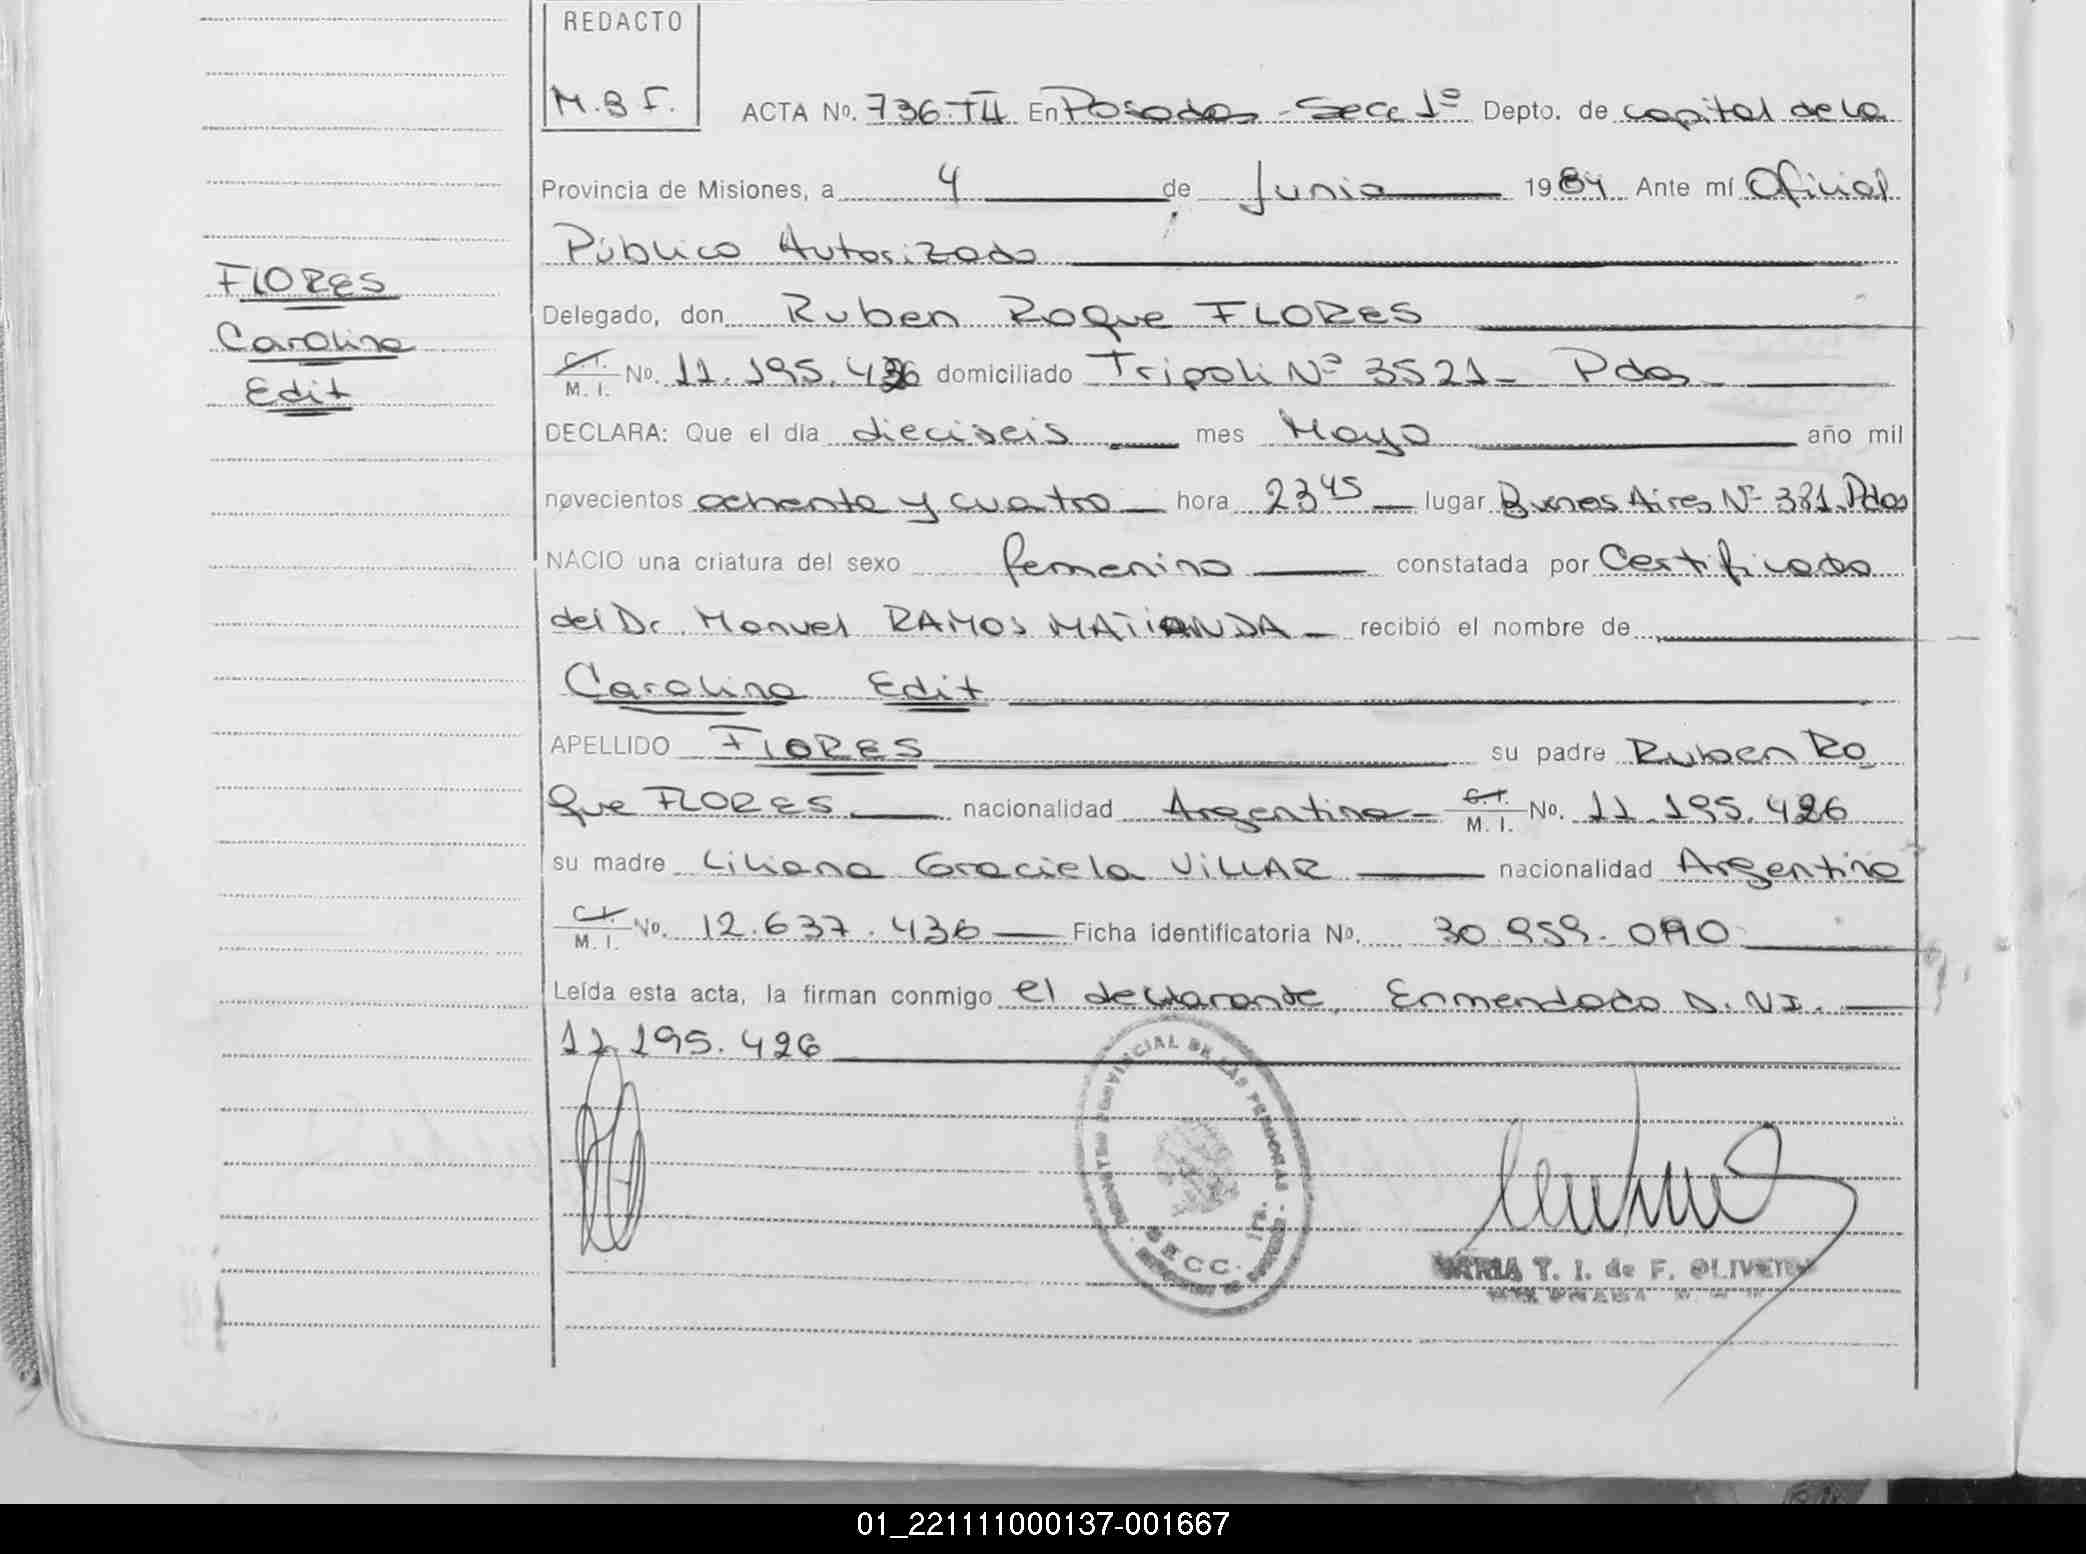 REDACTO
M.B F.
ACTA Nº. 736-TII En Posadas - Secc 1º Depto. de capital de la
Provincia de Misiones, a 4 de Junio 1984 Ante mí Oficial
Público Autorizado
FLORES
Carolina
Edit
Delegado, don Ruben Roque FLORES
C.I. M. I. Nº. 11.195.426 domiciliado Tripoli Nº 3521 - Pdas
DECLARA: Que el día dieciseis mes Mayo año mil
novecientos ochenta y cuatro hora 23 45 lugar Buenos Aires Nº 381. Pdas
NACIO una criatura del sexo femenino constatada por Certificado
del Dr. Manuel RAMOS recibió el nombre de
Carolina Edit
APELLIDO FLORES su padre Ruben Ro
que FLORES nacionalidad Argentina - C.I. M. I. Nº. 11.195.426
su madre Liliana Graciela VILLAR nacionalidad Argentina
C.I. M. I. Nº. 12.637.436 Ficha identificatoria Nº. 30.959.090
Leída esta acta, la firman conmigo el declarante. Enmendado D.N.I.
11.195.426
PROVINCIAL DE LAS PERSONAS
SECC. 1ra.
MARIA T. I. de F. OLIVEIRA
01_221111000137-001667